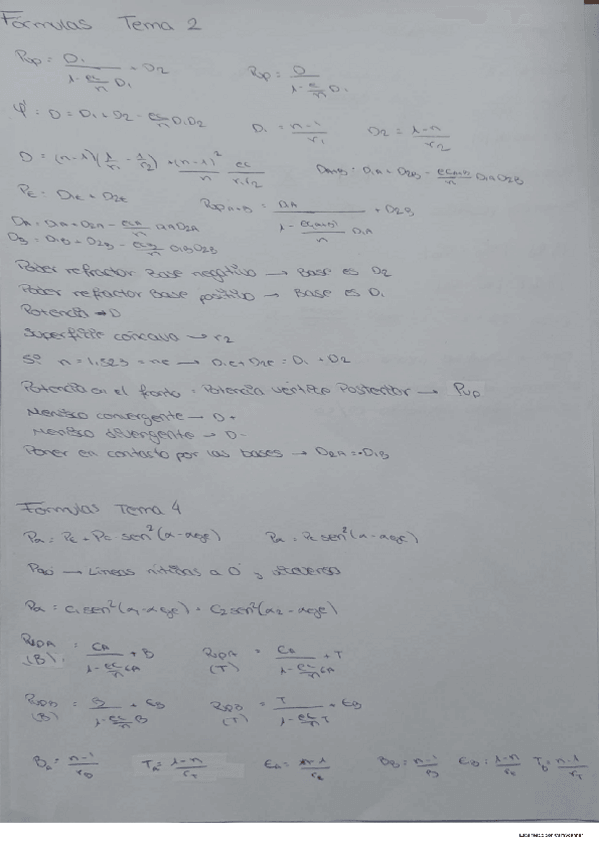 Fórmulas Tema 2
Pvp = D1 / (1 - ec/n D1) + D2   Pvp = D / (1 - ec/n D1)
φ' = D = D1 + D2 - ec/n D1D2   D1 = n-1 / r1   D2 = 1-n / r2
D = (n-1)(1/r1 - 1/r2) + (n-1)²/n ec/r1r2   DA+B = D1A + D2B - ec(A+B)/n D1A D2B
Pε = D1ε + D2ε   PvpA+B = D1A / (1 - ec(A+B)/n D1A) + D2B
DA = D1A + D2A - ecA/n D1A D2A
DB = D1B + D2B - ecB/n D1B D2B
Poder refractor Base negativo → Base es D2
Poder refractor Base positivo → Base es D1
Potencia → D
Superficie cóncava → r2
Si n = 1,523 = nε → D1ε + D2ε = D1 + D2
Potencia en el fronto = Potencia vértice Posterior → Pvp
Menisco convergente → D+
Menisco divergente → D-
Poner en contacto por las bases → D2A = -D1B
Fórmulas Tema 4
Pα = Pε + Pc sen²(α - αeje)   Pα = Pc sen²(α - αeje)
→ Líneas nítidas a 0
Pα = C1 sen²(α1 - αeje) + C2 sen²(α2 - αeje)
PvpA (B) = CA / (1 - ec/n CA) + B   PvpA (T) = CA / (1 - ec/n CA) + T
PvpB (B) = B / (1 - ec/n B) + EB   PvpB (T) = T / (1 - ec/n T) + EB
BA = n-1 / rB   TA = 1-n / rT   EA = n-1 / rE   BB = n-1 / rB   EB = 1-n / rE   TB = n-1 / rT